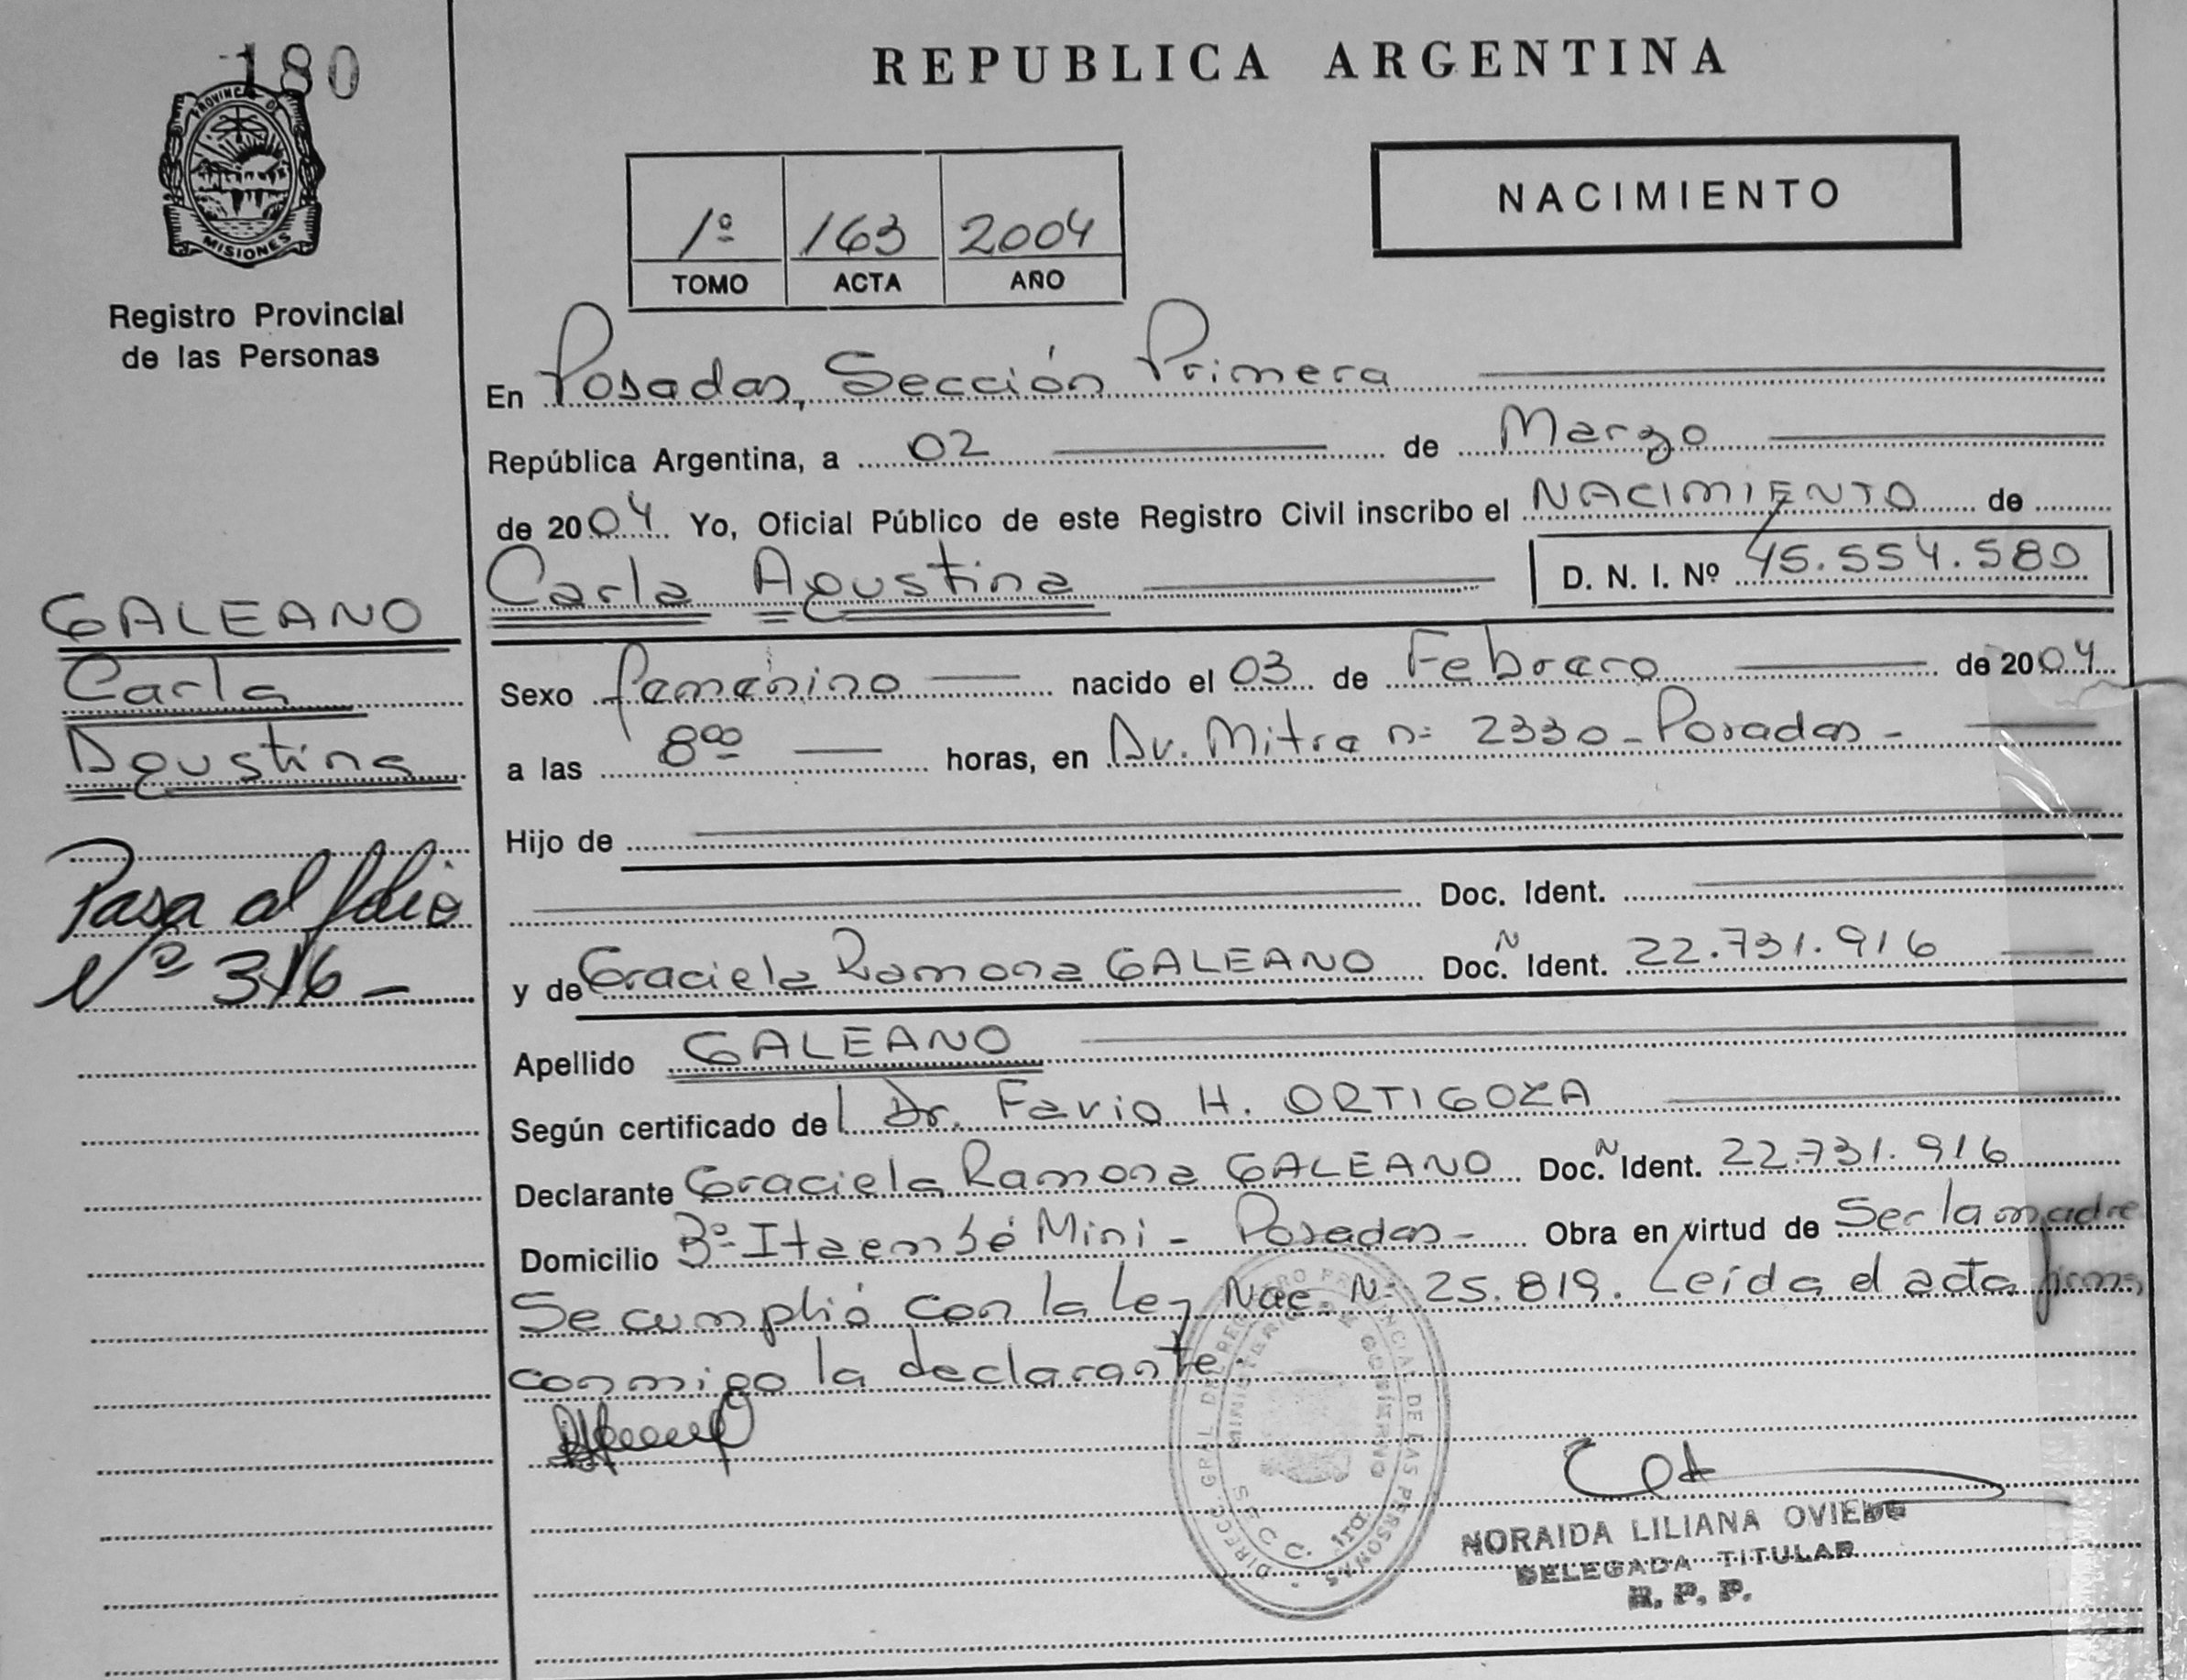 180
PROVINCIA DE
MISIONES
Registro Provincial
de las Personas
GALEANO
Carla
Agustina
Pasa al folio
Nº 316 -
REPUBLICA ARGENTINA
1º 163 2004
TOMO ACTA AÑO
NACIMIENTO
En Posadas, Sección Primera
República Argentina, a 02 de Marzo
de 2004 Yo, Oficial Público de este Registro Civil inscribo el NACIMIENTO de
Carla Agustina D. N. I. Nº 45.554.580
Sexo femenino nacido el 03 de Febrero de 2004
a las 8ºº horas, en Av. Mitre nº 2330 - Posadas -
Hijo de
Doc. Ident.
y de Graciela Ramona GALEANO Doc. N Ident. 22.731.916
Apellido GALEANO
Según certificado del Dr. Favio H. ORTIGOZA
Declarante Graciela Ramona GALEANO Doc. N Ident. 22.731.916
Domicilio Bº Itaembé Mini - Posadas - Obra en virtud de Ser la madre
Se cumplió con la Ley Nac. Nº 25.819. Leída el acta firma
conmigo la declarante.
DIRECC. GRAL. DEL REGISTRO PROVINCIAL DE LAS PERSONAS
MINISTERIO DE GOBIERNO
SECC. 1ra.
NORAIDA LILIANA OVIEDO
DELEGADA TITULAR
R. P. P.